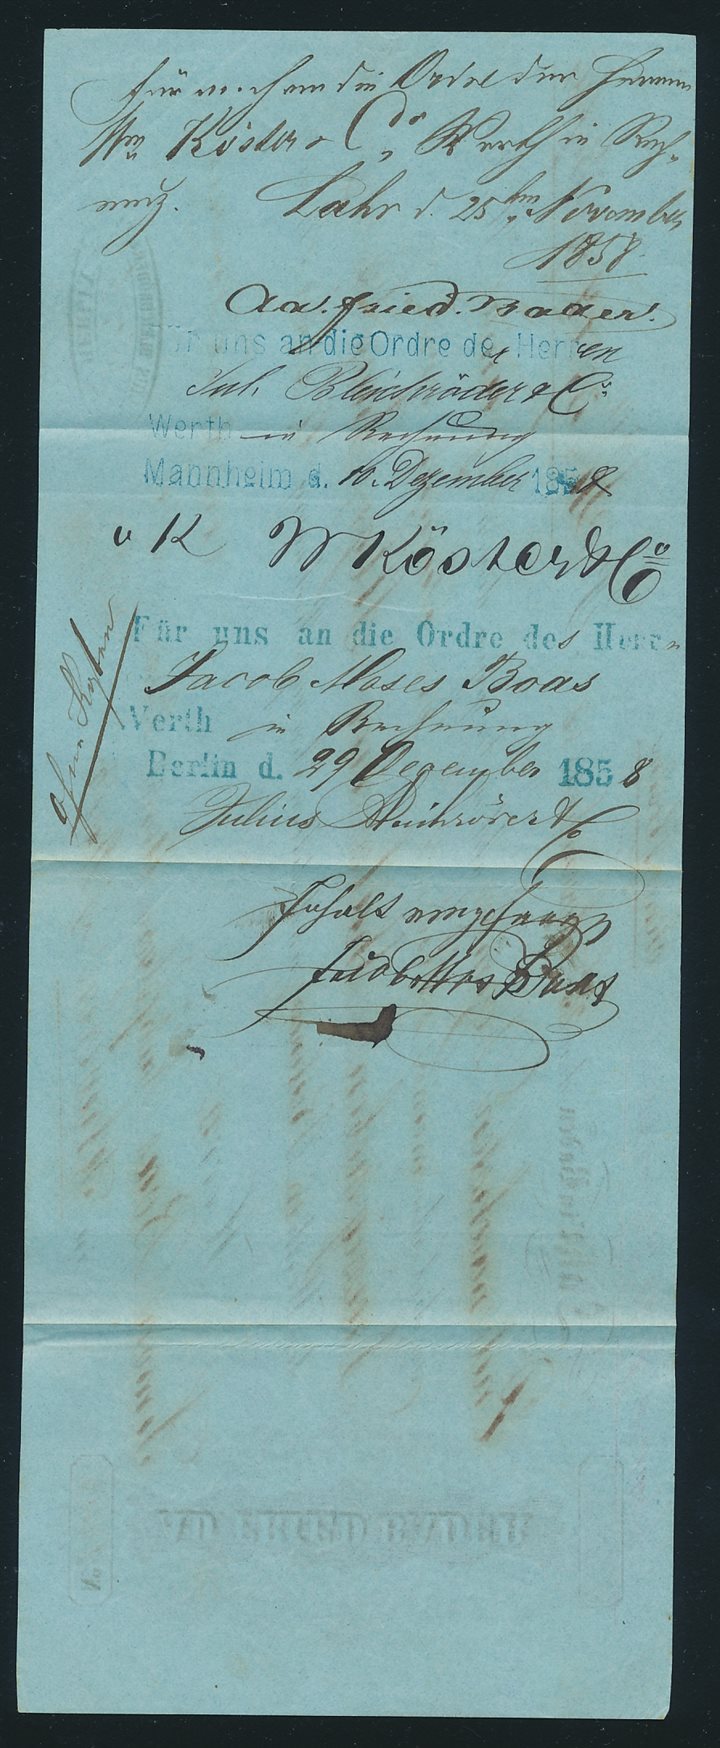 für mich an die Ordre der Herren
Wm Köster & Co, Werth in Rech-
nung. Lahr d. 25ten November
1858.
Ad. Fried. Bader.
Für uns an die Ordre der Herren
Jul. Bleichröder & Co.
Werth in Rechnung
Mannheim d. 10. Dezember 1858
W Köster & Co
Für uns an die Ordre des Herrn
Jacob Moses Boas
Werth in Rechnung
Berlin d. 29 Dezember 1858
Julius Bleichröder & Co
ohne Kosten
Inhalt empfangen
Jacob Moses Boas